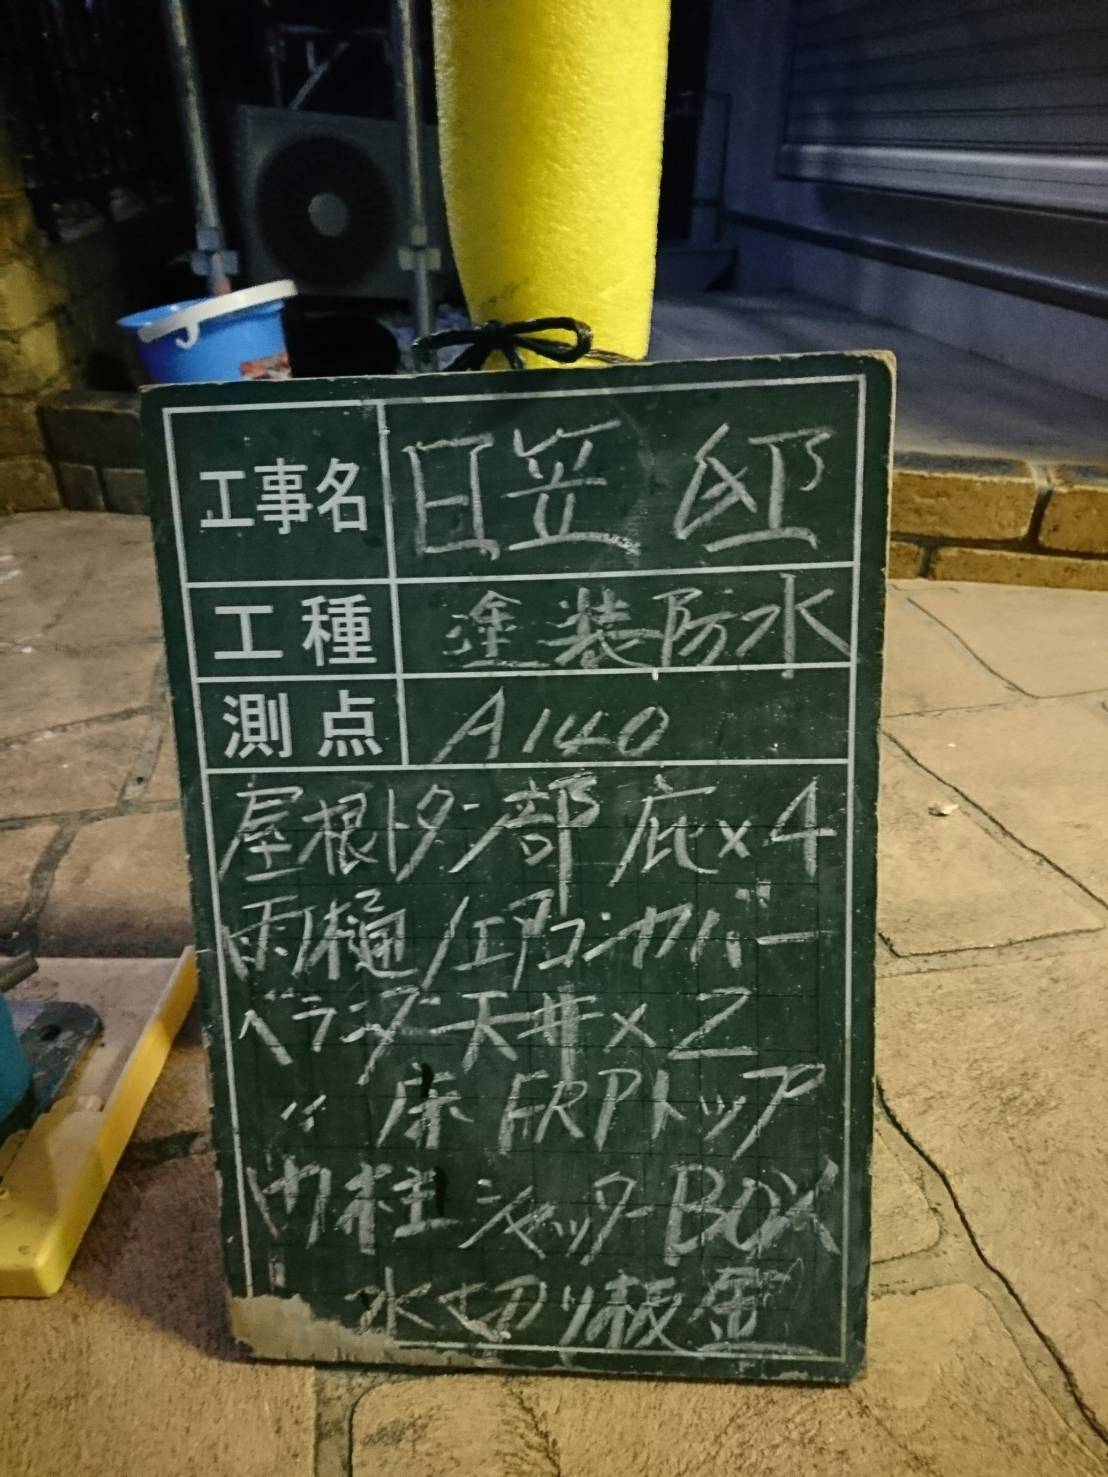 工事名 日笠 邸
工種 塗装防水
測点 A140
屋根トタン部 庇×4
雨樋/エアコンカバー
ベランダー天井×2
〃 床 FRPトップ
柱 シャッターBOX
水切り板金